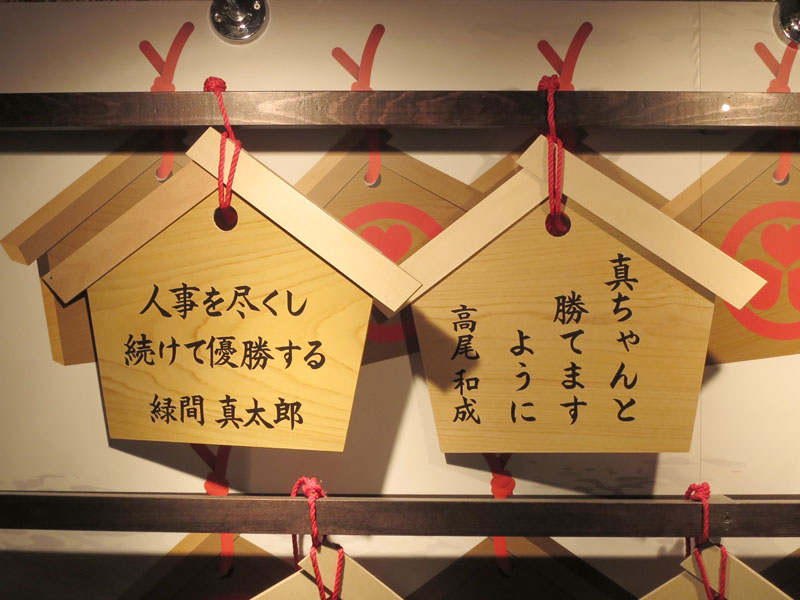 人事を尽くし
続けて優勝する
緑間 真太郎
真ちゃんと
勝てます
ように
高尾 和成